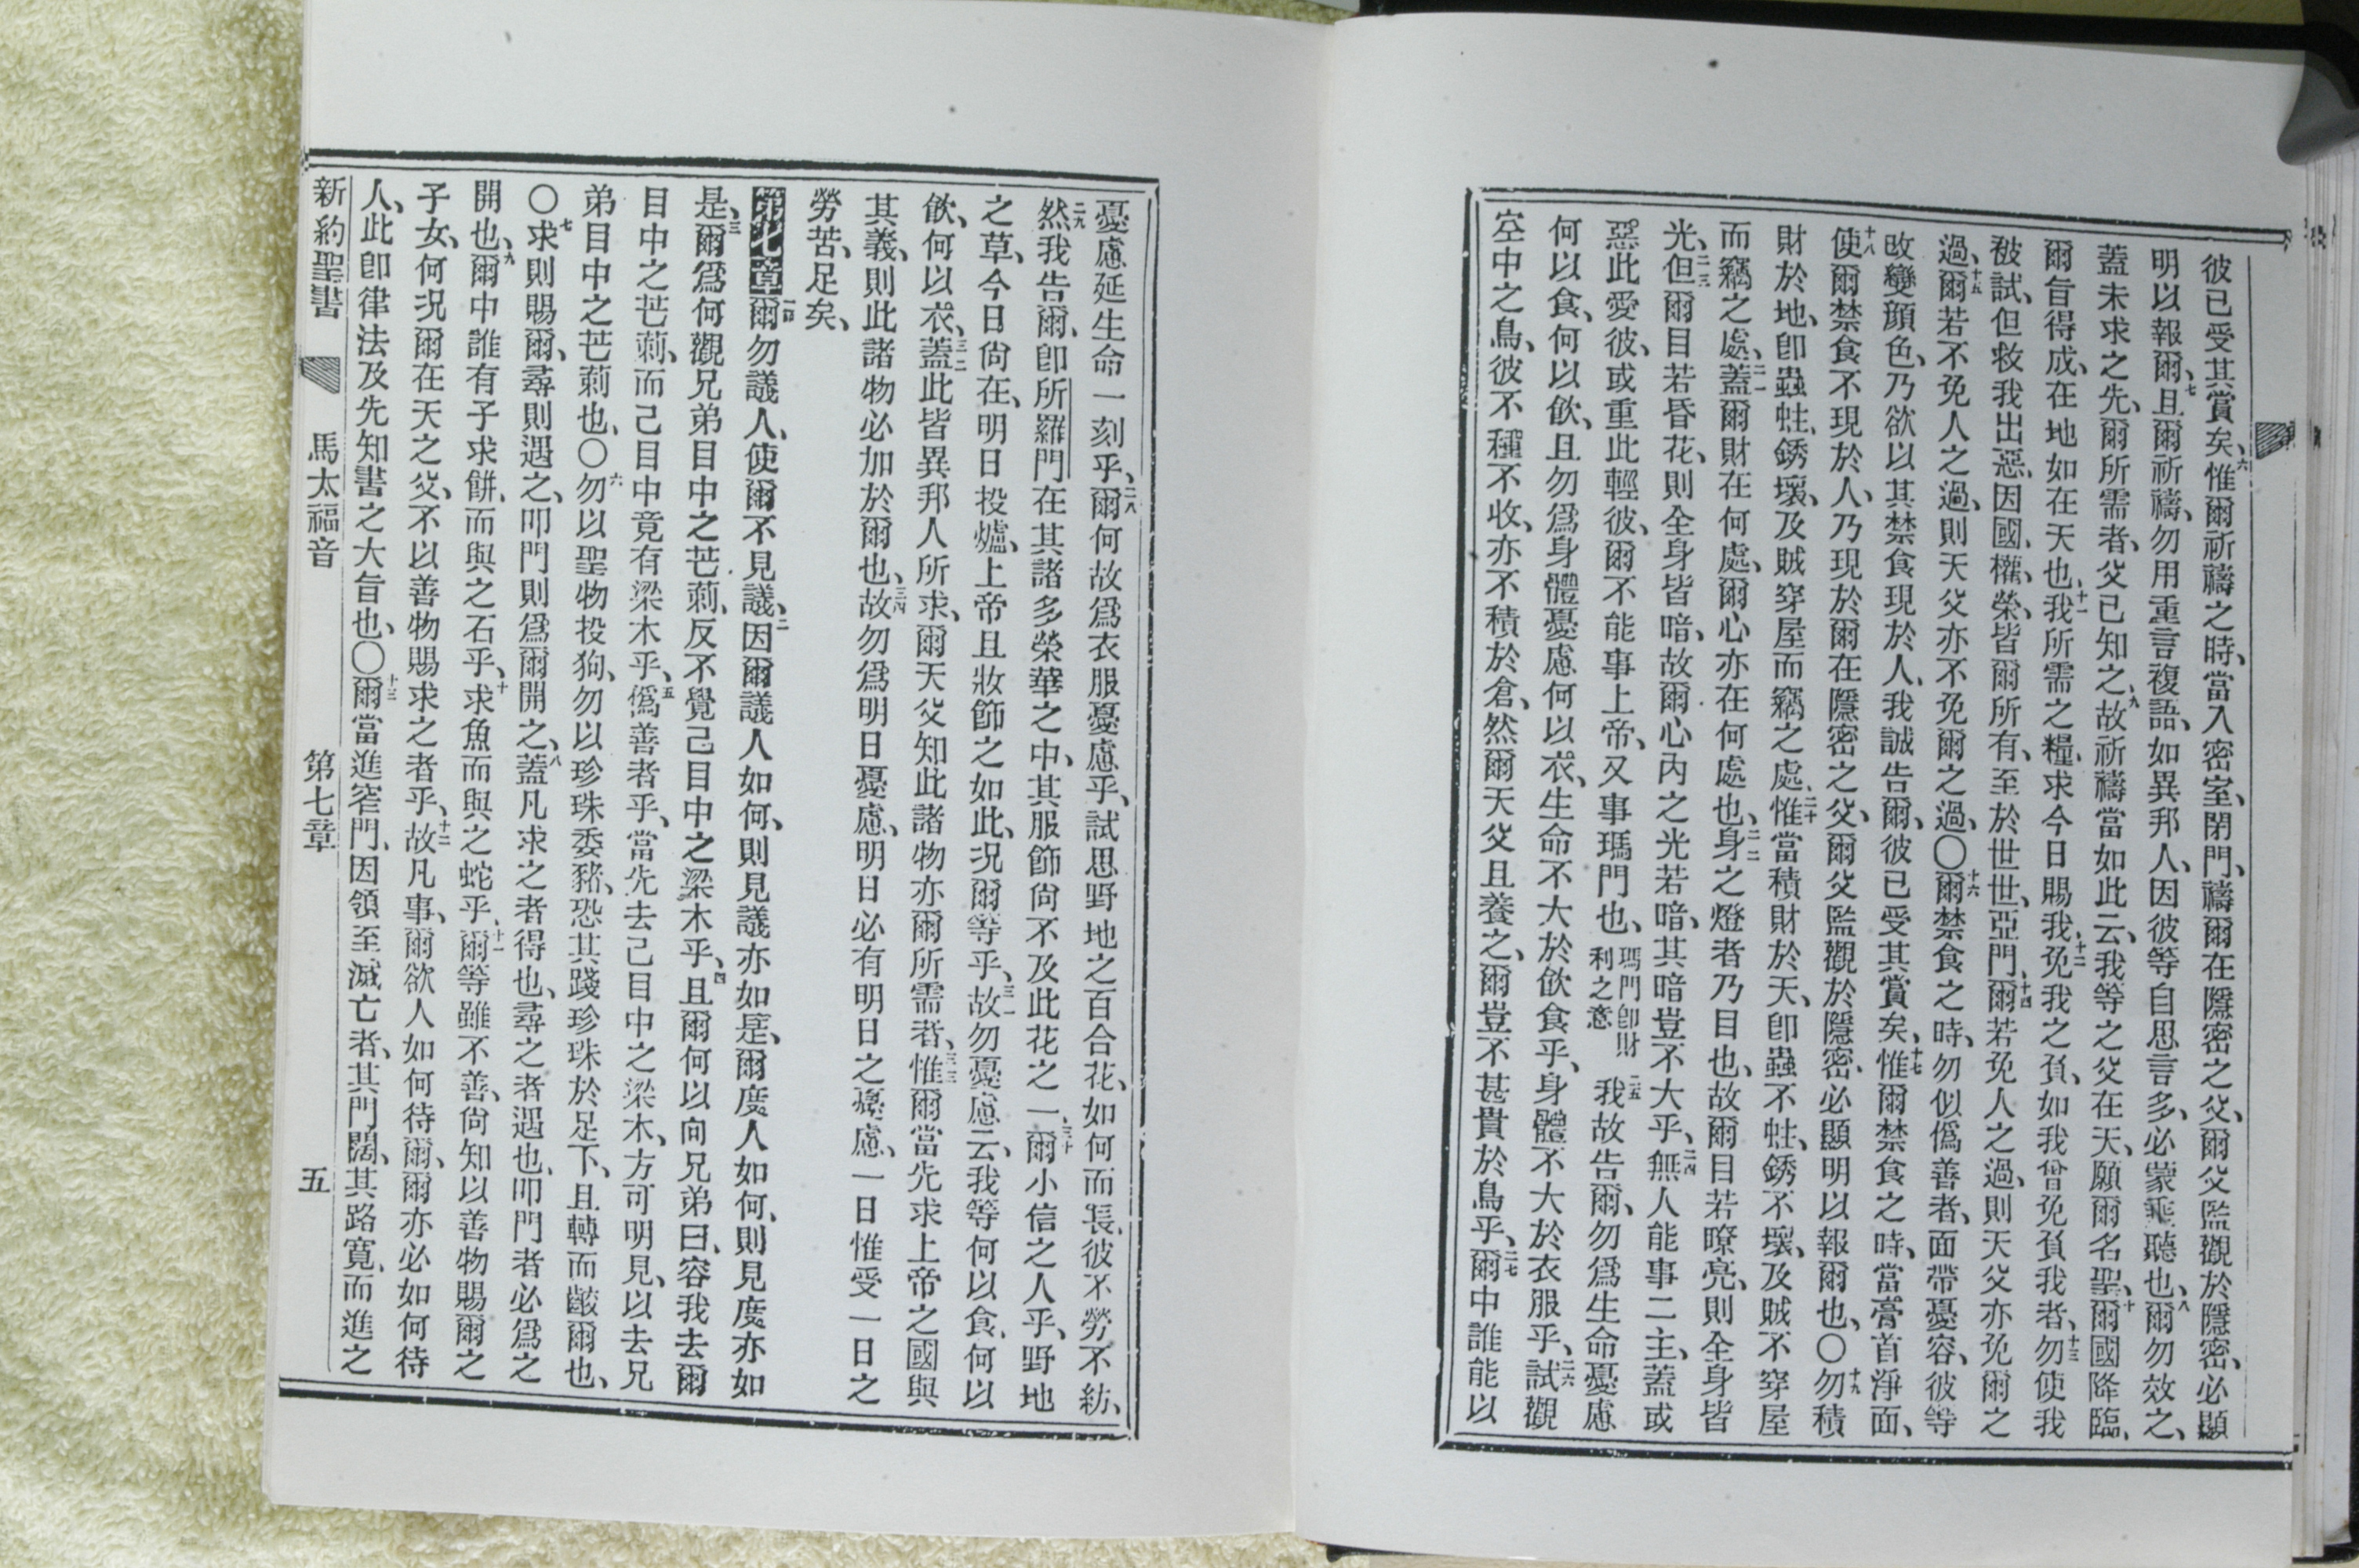 彼已受其賞矣、六惟爾祈禱之時、當入密室、閉門、禱爾在隱密之父、爾父監觀於隱密、必顯
明以報爾、七且爾祈禱、勿用重言複語、如異邦人、因彼等自思言多、必蒙垂聽也、八爾勿效之、
蓋未求之先、爾所需者、父已知之、九故祈禱當如此云、我等之父在天、願爾名聖、十爾國降臨、
爾旨得成、在地如在天也、十一我所需之糧、求今日賜我、十二免我之負、如我曾免負我者、十三勿使我
被試、但救我出惡、因國、權、榮、皆爾所有、至於世世、亞門、十四爾若免人之過、則天父亦免爾之
過、十五爾若不免人之過、則天父亦不免爾之過、〇十六爾禁食之時、勿似僞善者、面帶憂容、彼等
改變顔色、乃欲以其禁食現於人、我誠告爾、彼已受其賞矣、十七惟爾禁食之時、當膏首淨面、
十八使爾禁食不現於人、乃現於爾在隱密之父、爾父監觀於隱密、必顯明以報爾也、〇十九勿積
財於地、卽蟲蛀、銹壞、及賊穿屋而竊之處、二十惟當積財於天、卽蟲不蛀、銹不壞、及賊不穿屋
而竊之處、二一蓋爾財在何處、爾心亦在何處也、二二身之燈者乃目也、故爾目若瞭亮、則全身皆
光、二三但爾目若昏花、則全身皆暗、故爾心內之光若暗、其暗豈不大乎、二四無人能事二主、蓋或
惡此愛彼、或重此輕彼、爾不能事上帝、又事瑪門也、瑪門卽財利之意 二五我故告爾、勿爲生命憂慮
何以食、何以飲、且勿爲身體憂慮何以衣、生命不大於飲食乎、身體不大於衣服乎、二六試觀
空中之鳥、彼不種不收、亦不積於倉、然爾天父且養之、爾豈不甚貴於鳥乎、二七爾中誰能以
憂慮延生命一刻乎、二八爾何故爲衣服憂慮乎、試思野地之百合花、如何而長、彼不勞不紡、
二九然我告爾、卽所羅門在其諸多榮華之中、其服飾尙不及此花之一、三十爾小信之人乎、野地
之草、今日尙在、明日投爐、上帝且妝飾之如此、况爾等乎、三一故勿憂慮云、我等何以食、何以
飲、何以衣、三二蓋此皆異邦人所求、爾天父知此諸物亦爾所需者、三三惟爾當先求上帝之國與
其義、則此諸物必加於爾也、三四故勿爲明日憂慮、明日必有明日之憂慮、一日惟受一日之
勞苦、足矣、
第七章 一爾勿議人、使爾不見議、二因爾議人如何、則見議亦如是、爾度人如何、則見度亦如
是、三爾爲何觀兄弟目中之芒莿、反不覺己目中之梁木乎、四且爾何以向兄弟曰、容我去爾
目中之芒莿、而己目中竟有梁木乎、五僞善者乎、當先去己目中之梁木、方可明見、以去兄
弟目中之芒莿也、〇六勿以聖物投狗、勿以珍珠委豬、恐其踐珍珠於足下、且轉而齩爾也、
〇七求則賜爾、尋則遇之、叩門則爲爾開之、八蓋凡求之者得也、尋之者遇也、叩門者必爲之
開也、九爾中誰有子求餅、而與之石乎、十求魚而與之蛇乎、十一爾等雖不善、尙知以善物賜爾之
子女、何况爾在天之父、不以善物賜求之者乎、十二故凡事、爾欲人如何待爾、爾亦必如何待
人、此卽律法及先知書之大旨也、〇十三爾當進窄門、因領至滅亡者、其門闊、其路寬、而進之
新約聖書 馬太福音 第七章 五